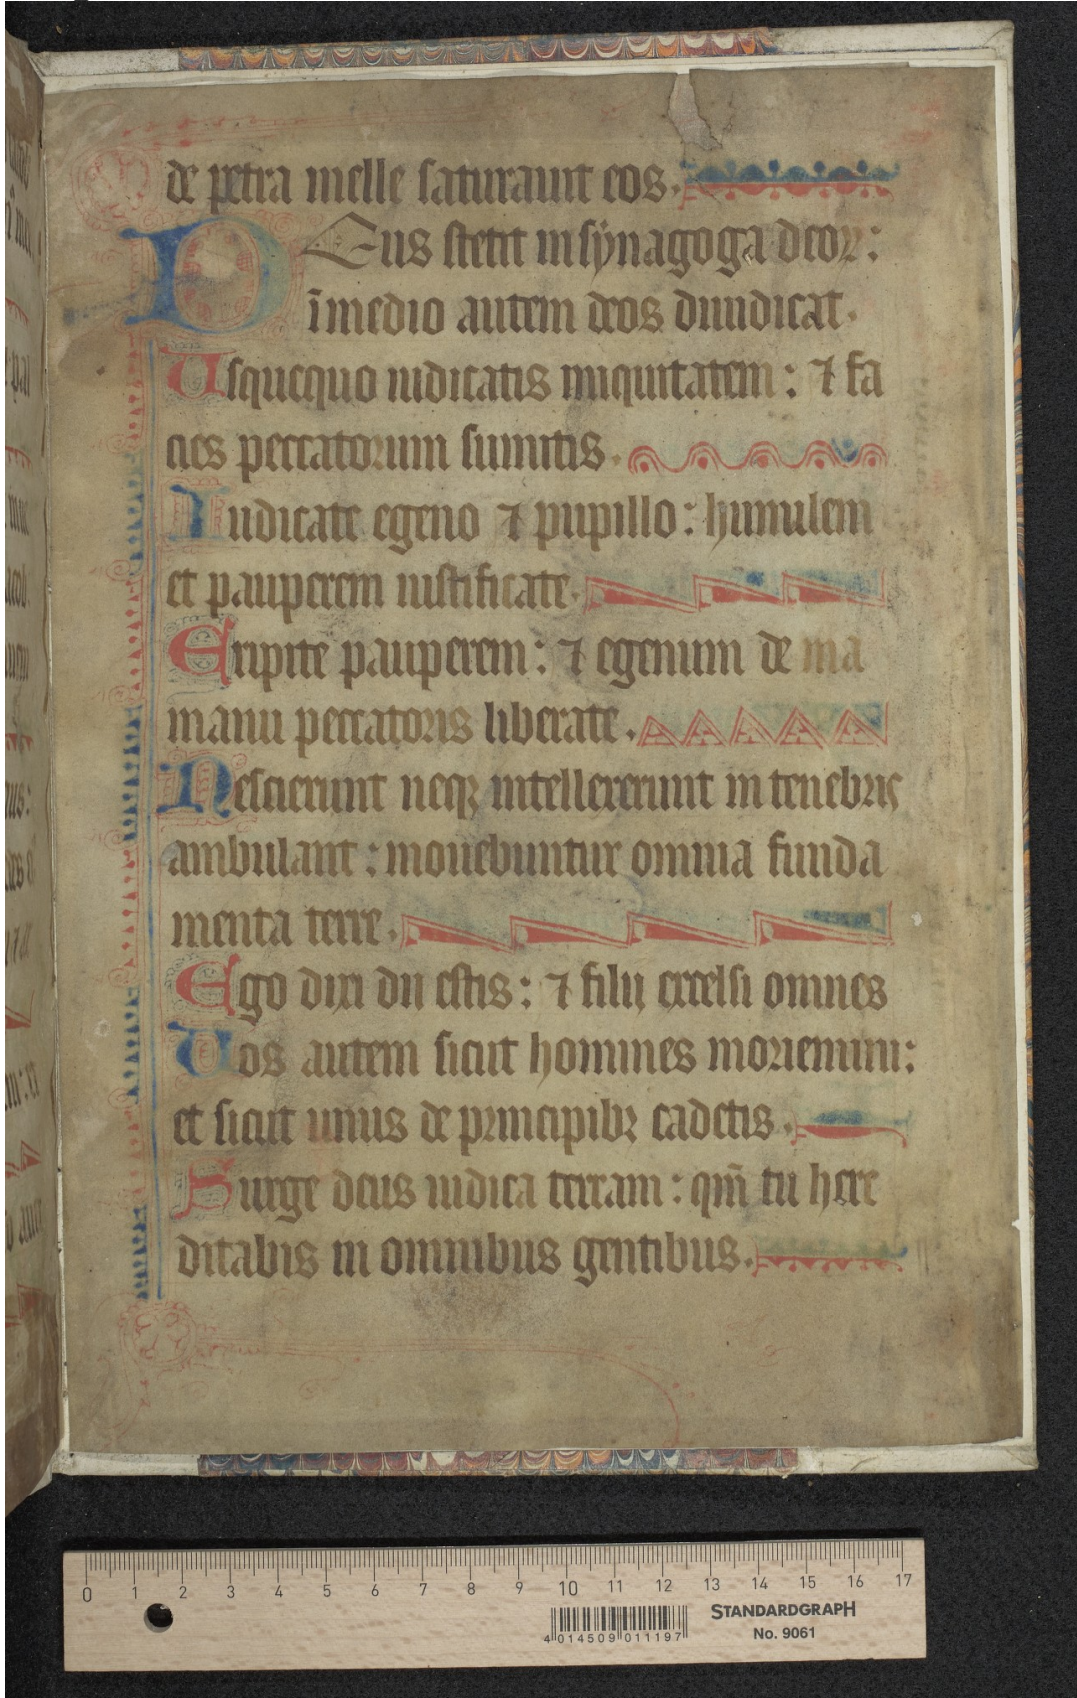 de petra melle saturauit eos.
Deus stetit in synagoga deoꝝ:
ī medio autem deos diiudicat.
Usquequo iudicatis iniquitatem: ⁊ fa
cies peccatorum sumitis.
Iudicate egeno ⁊ pupillo: humilem
et pauperem iustificate.
Eripite pauperem: ⁊ egenum de ma
manu peccatoris liberate.
Nescierunt neqꝫ intellexerunt in tenebris
ambulant: mouebuntur omnia funda
menta terre.
Ego dixi dii estis: ⁊ filij excelsi omnes
Uos autem sicut homines moriemini:
et sicut unus de principibꝫ cadetis.
Surge deus iudica terram: qm̄ tu here
ditabis in omnibus gentibus.
0 1 2 3 4 5 6 7 8 9 10 11 12 13 14 15 16 17
STANDARDGRAPH
No. 9061
4 014509 011197